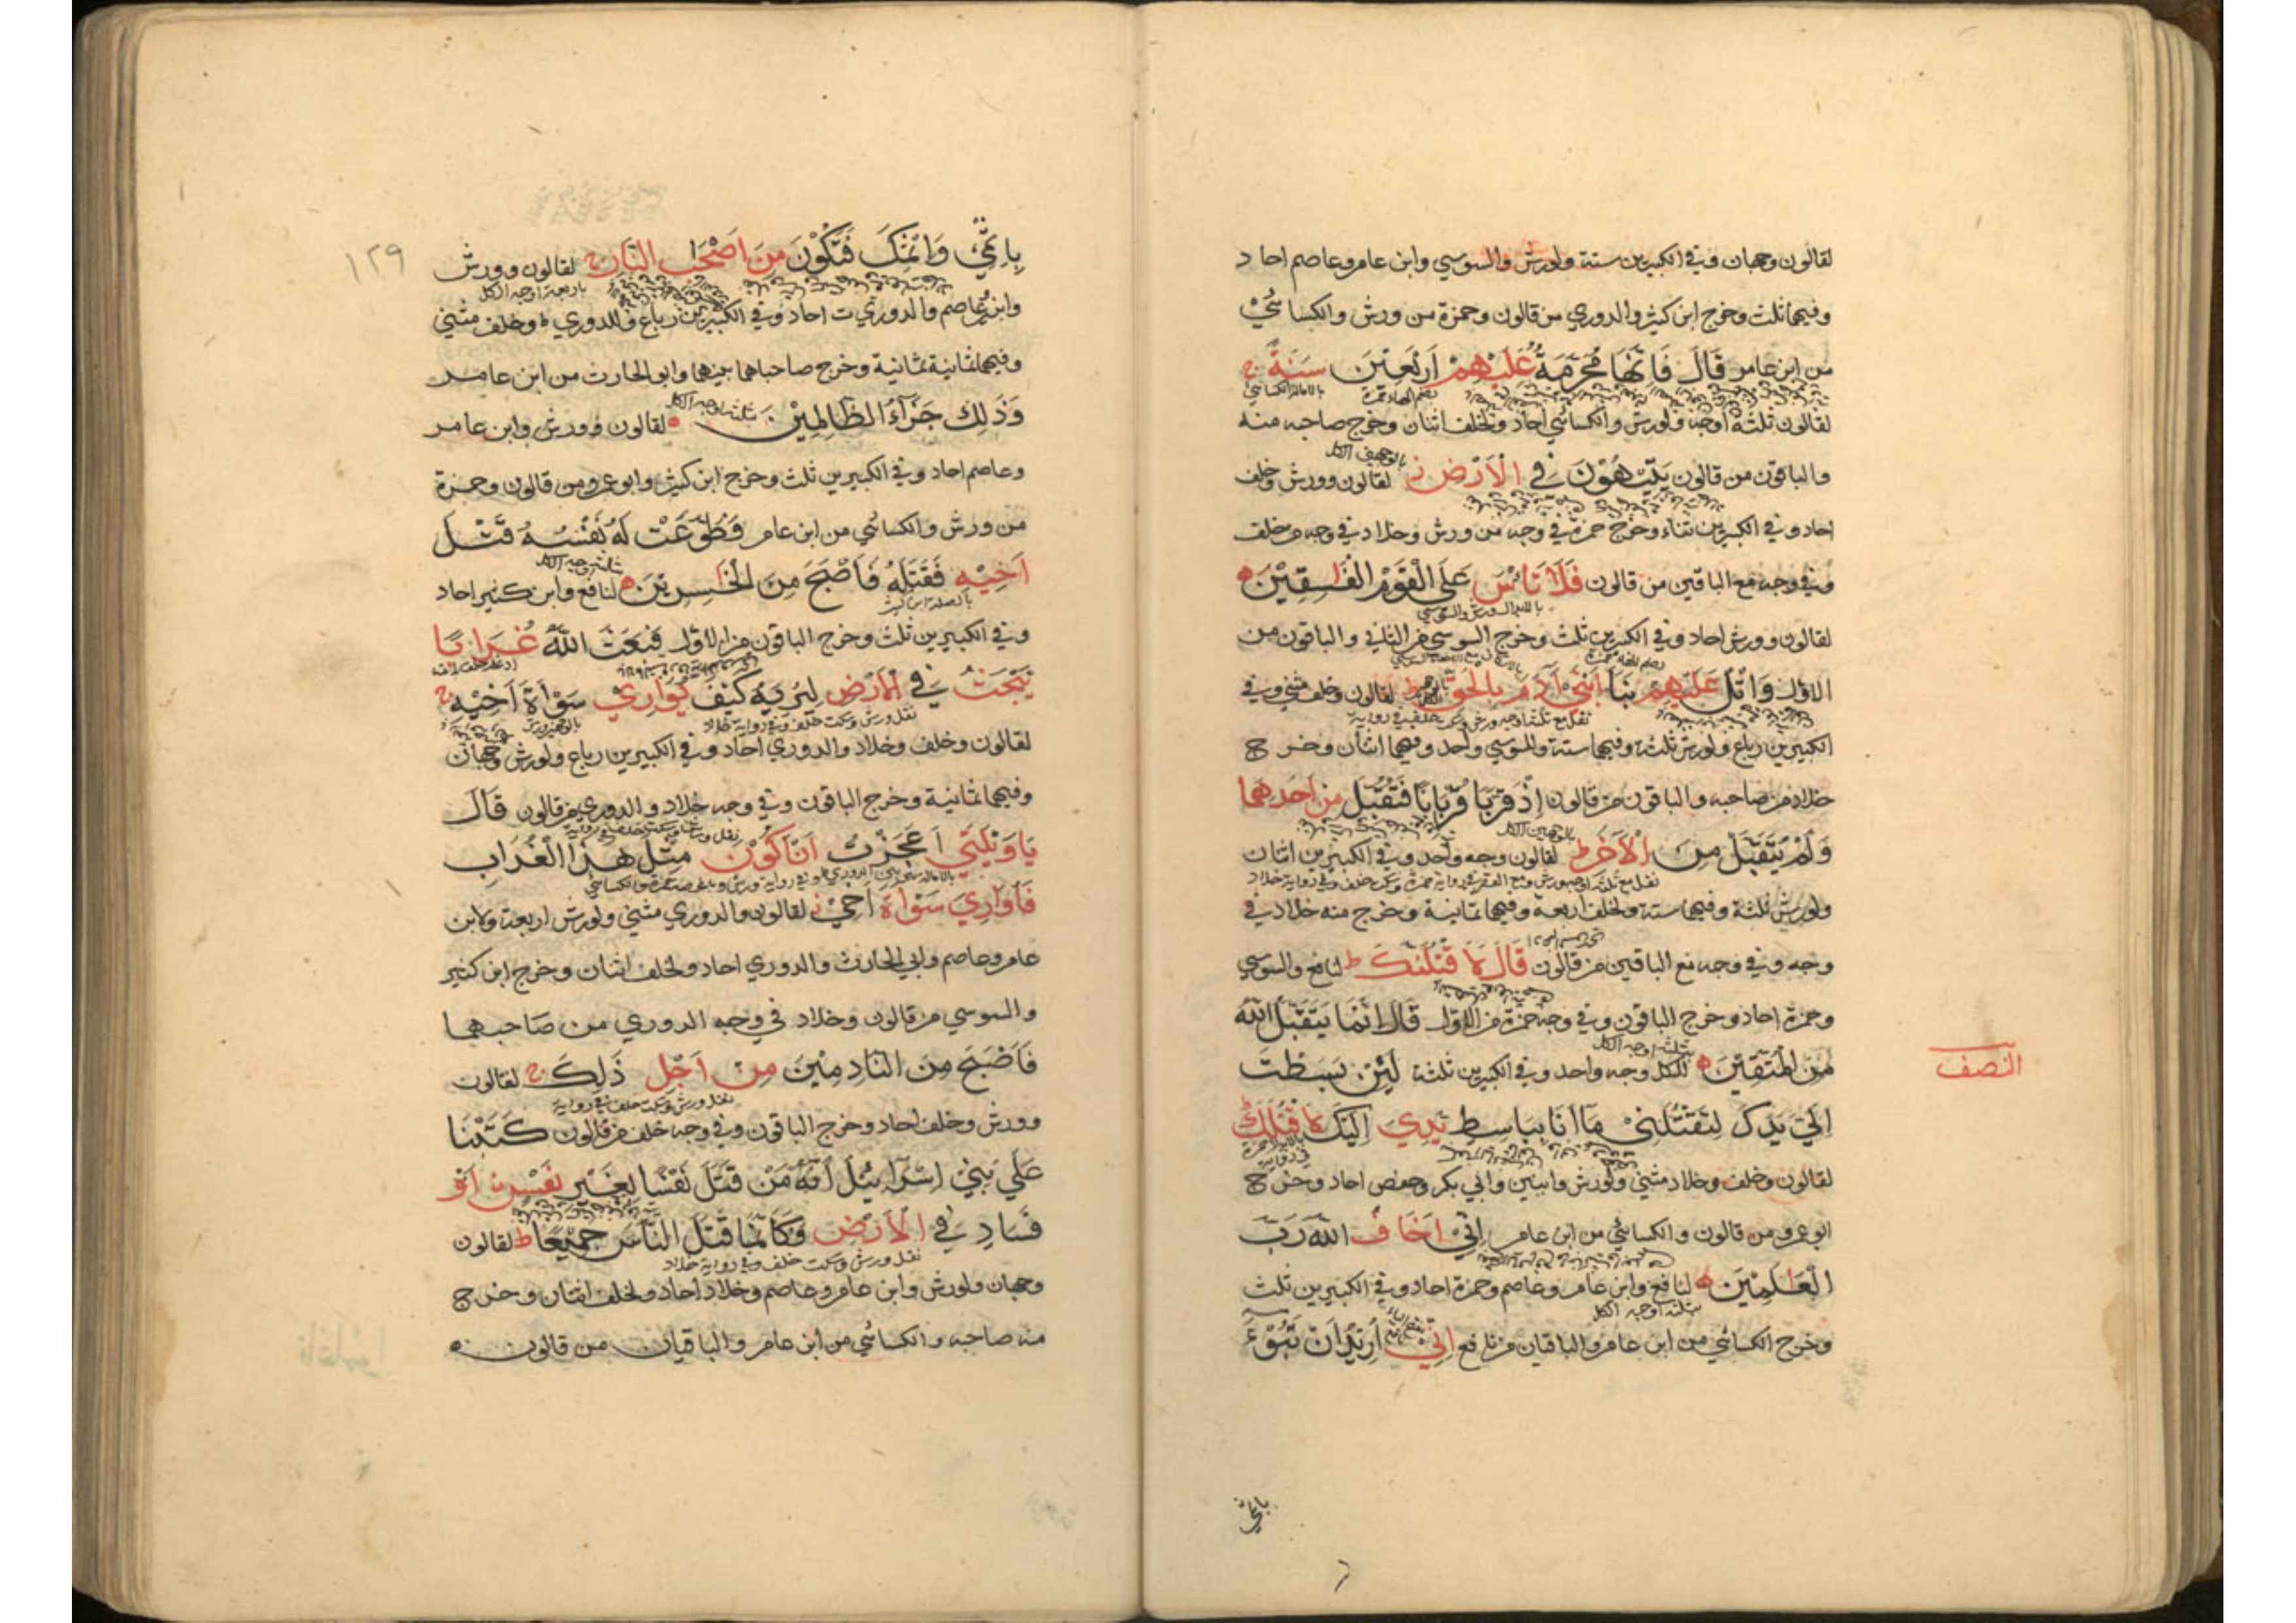 لقالون وجهان وفي الكبيرين ستة ولورش والسوسي وابن عامر وعاصم احاد
وفيهما ثلث وخرج ابن كثير والدوري من قالون وحمزة من ورش والكسائي
من ابن عامر قَالَ فَاِنَّهَا مُحَرَّمَةٌ عَلَيْهِمْ اَرْبَعِيْنَ سَنَةً ج
بالامالة الكسائي
لقالون ثلثة اوجه ولورش والكسائي احاد ولخلف اثنان وخرج صاحبه منه
والباقون من قالون يَتِيْهُوْنَ فِي الْاَرْضِ ط لقالون وورش وخلف
احاد وفي الكبيرين ثناء وخرج حمزة في وجه من ورش وخلاد في وجه من خلف
وفي وجه مع الباقين من قالون فَلَا تَاْسَ عَلَى الْقَوْمِ الْفٰسِقِيْنَ ه
لقالون وورش احاد وفي الكبيرين ثلث وخرج السوسي من الثاني والباقون من
الاول وَاتْلُ عَلَيْهِمْ نَبَاَ ابْنَيْ اٰدَمَ بِالْحَقِّ لقالون وخلف مثنى وفي
الكبيرين رباع ولورش ثلثة وفيهما ستة وللسوسي واحد وفيهما اثنان وخرج
خلاد من صاحبه والباقون من قالون اِذْ قَرَّبَا قُرْبَانًا فَتُقُبِّلَ مِنْ اَحَدِهِمَا
وَلَمْ يُتَقَبَّلْ مِنَ الْاٰخَرِ ط لقالون وجه واحد وفي الكبيرين اثنان
ولورش ثلثة وفيهما ستة ولخلف اربعة وفيهما ثمانية وخرج منه خلاد في
وجه وفي وجه مع الباقين من قالون قَالَ لَاَقْتُلَنَّكَ ط لنافع والسوسي
وحمزة احاد وخرج الباقون وفي وجه حمزة من الاول قَالَ اِنَّمَا يَتَقَبَّلُ اللّٰهُ
بثلثة اوجه الكل
مِنَ الْمُتَّقِيْنَ ه للكل وجه واحد وفي الكبيرين ثلثة لَئِنْ بَسَطْتَّ
النصف
اِلَيَّ يَدَكَ لِتَقْتُلَنِيْ مَا اَنَا بِبَاسِطٍ يَّدِيَ اِلَيْكَ لِاَقْتُلَكَ
لقالون وخلف وخلاد مثنى ولورش وابنين وابي بكر وحفص احاد وخرج
ابو عمرو من قالون والكسائي من ابن عامر اِنِّيْ اَخَافُ اللّٰهَ رَبَّ
الْعٰلَمِيْنَ ه لنافع وابن عامر وعاصم وحمزة احاد وفي الكبيرين ثلث
بثلثة اوجه الكل
وخرج الكسائي من ابن عامر والباقيان من نافع اِنِّيْ اُرِيْدُ اَنْ تَبُوْٓءَ
باثمي
١٢٩
بِاِثْمِيْ وَاِثْمِكَ فَتَكُوْنَ مِنْ اَصْحٰبِ النَّارِ ج لقالون وورش
باربعة اوجه الكل
وابن عاصم والدوري احاد وفي الكبيرين رباع وللدوري وخلف مثنى
وفيهما ثمانية ثمانية وخرج صاحباهما بينهما وابو الحارث من ابن عامر
وَذٰلِكَ جَزَآءُ الظَّالِمِيْنَ ه لقالون وورش وابن عامر
وعاصم احاد وفي الكبيرين ثلث وخرج ابن كثير وابو عمرو من قالون وحمزة
من ورش والكسائي من ابن عامر فَطَوَّعَتْ لَهُ نَفْسُهُ قَتْلَ
اَخِيْهِ فَقَتَلَهُ فَاَصْبَحَ مِنَ الْخٰسِرِيْنَ ه لنافع وابن كثير احاد
وفي الكبيرين ثلث وخرج الباقون من الاول فَبَعَثَ اللّٰهُ غُرَابًا
يَّبْحَثُ فِي الْاَرْضِ لِيُرِيَهُ كَيْفَ يُوَارِيْ سَوْاَةَ اَخِيْهِ ج
نقل ورش وسكت خلف وفي رواية خلاد
لقالون وخلف وخلاد والدوري احاد وفي الكبيرين رباع ولورش وجهان
وفيهما ثمانية وخرج الباقون وفي وجه خلاد والدوري من قالون قَالَ
يَاوَيْلَتٰى اَعَجَزْتُ اَنْ اَكُوْنَ مِثْلَ هٰذَا الْغُرَابِ
فَاُوَارِيَ سَوْاَةَ اَخِيْ ج لقالون والدوري مثنى ولورش اربعة ولابن
عامر وعاصم وابي الحارث والدوري احاد ولخلف اثنان وخرج ابن كثير
والسوسي من قالون وخلاد في وجه الدوري من صاحبهما
فَاَصْبَحَ مِنَ النَّادِمِيْنَ مِنْ اَجْلِ ذٰلِكَ ج لقالون
نقل ورش وسكت خلف في رواية
وورش وخلف احاد وخرج الباقون وفي وجه خلف من قالون كَتَبْنَا
عَلٰى بَنِيْ اِسْرَآئِيْلَ اَنَّهُ مَنْ قَتَلَ نَفْسًا بِغَيْرِ نَفْسٍ اَوْ
فَسَادٍ فِي الْاَرْضِ فَكَاَنَّمَا قَتَلَ النَّاسَ جَمِيْعًا ط لقالون
نقل ورش وسكت خلف وفي رواية خلاد
وجهان ولورش وابن عامر وعاصم وخلاد احاد ولخلف اثنان وخرج
منه صاحبه والكسائي من ابن عامر والباقيان من قالون ه